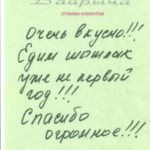 ОТЗЫВЫ КЛИЕНТОВ
Очень вкусно!!!
Едим шашлык
уже не первый
год!!!
Спасибо
огромное!!!